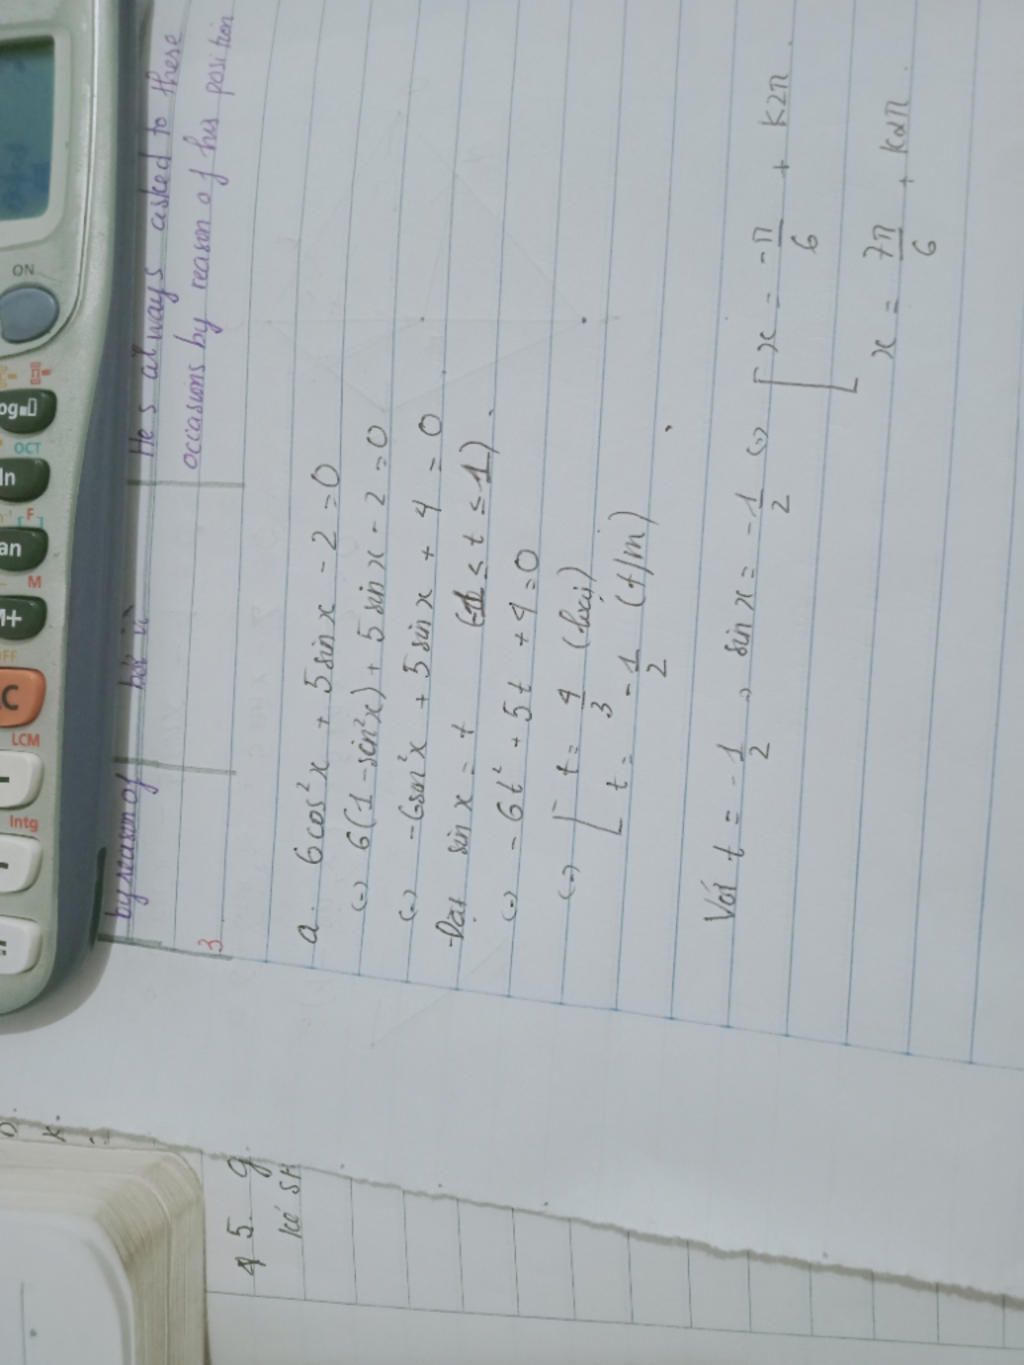 ON
OCT
ln
F
an
M
M+
OFF
LCM
Intg
by reason of
He s always asked to these
occiasions by reason of his position
3
a. 6cos²x + 5sinx - 2 = 0
(=) 6(1-sin²x) + 5 sin x - 2 = 0
(=) -6sin²x + 5 sinx + 4 = 0
Đặt sin x = t (-1 ≤ t ≤ 1).
(=) -6t² + 5t + 4 = 0
(=) [ t = 4/3 (loại)
t = -1/2 (t/m)
Với t = -1/2, sin x = -1/2 (=) [ x = -π/6 + k2π.
x = 7π/6 + k2π.
45. g.
kẻ SH